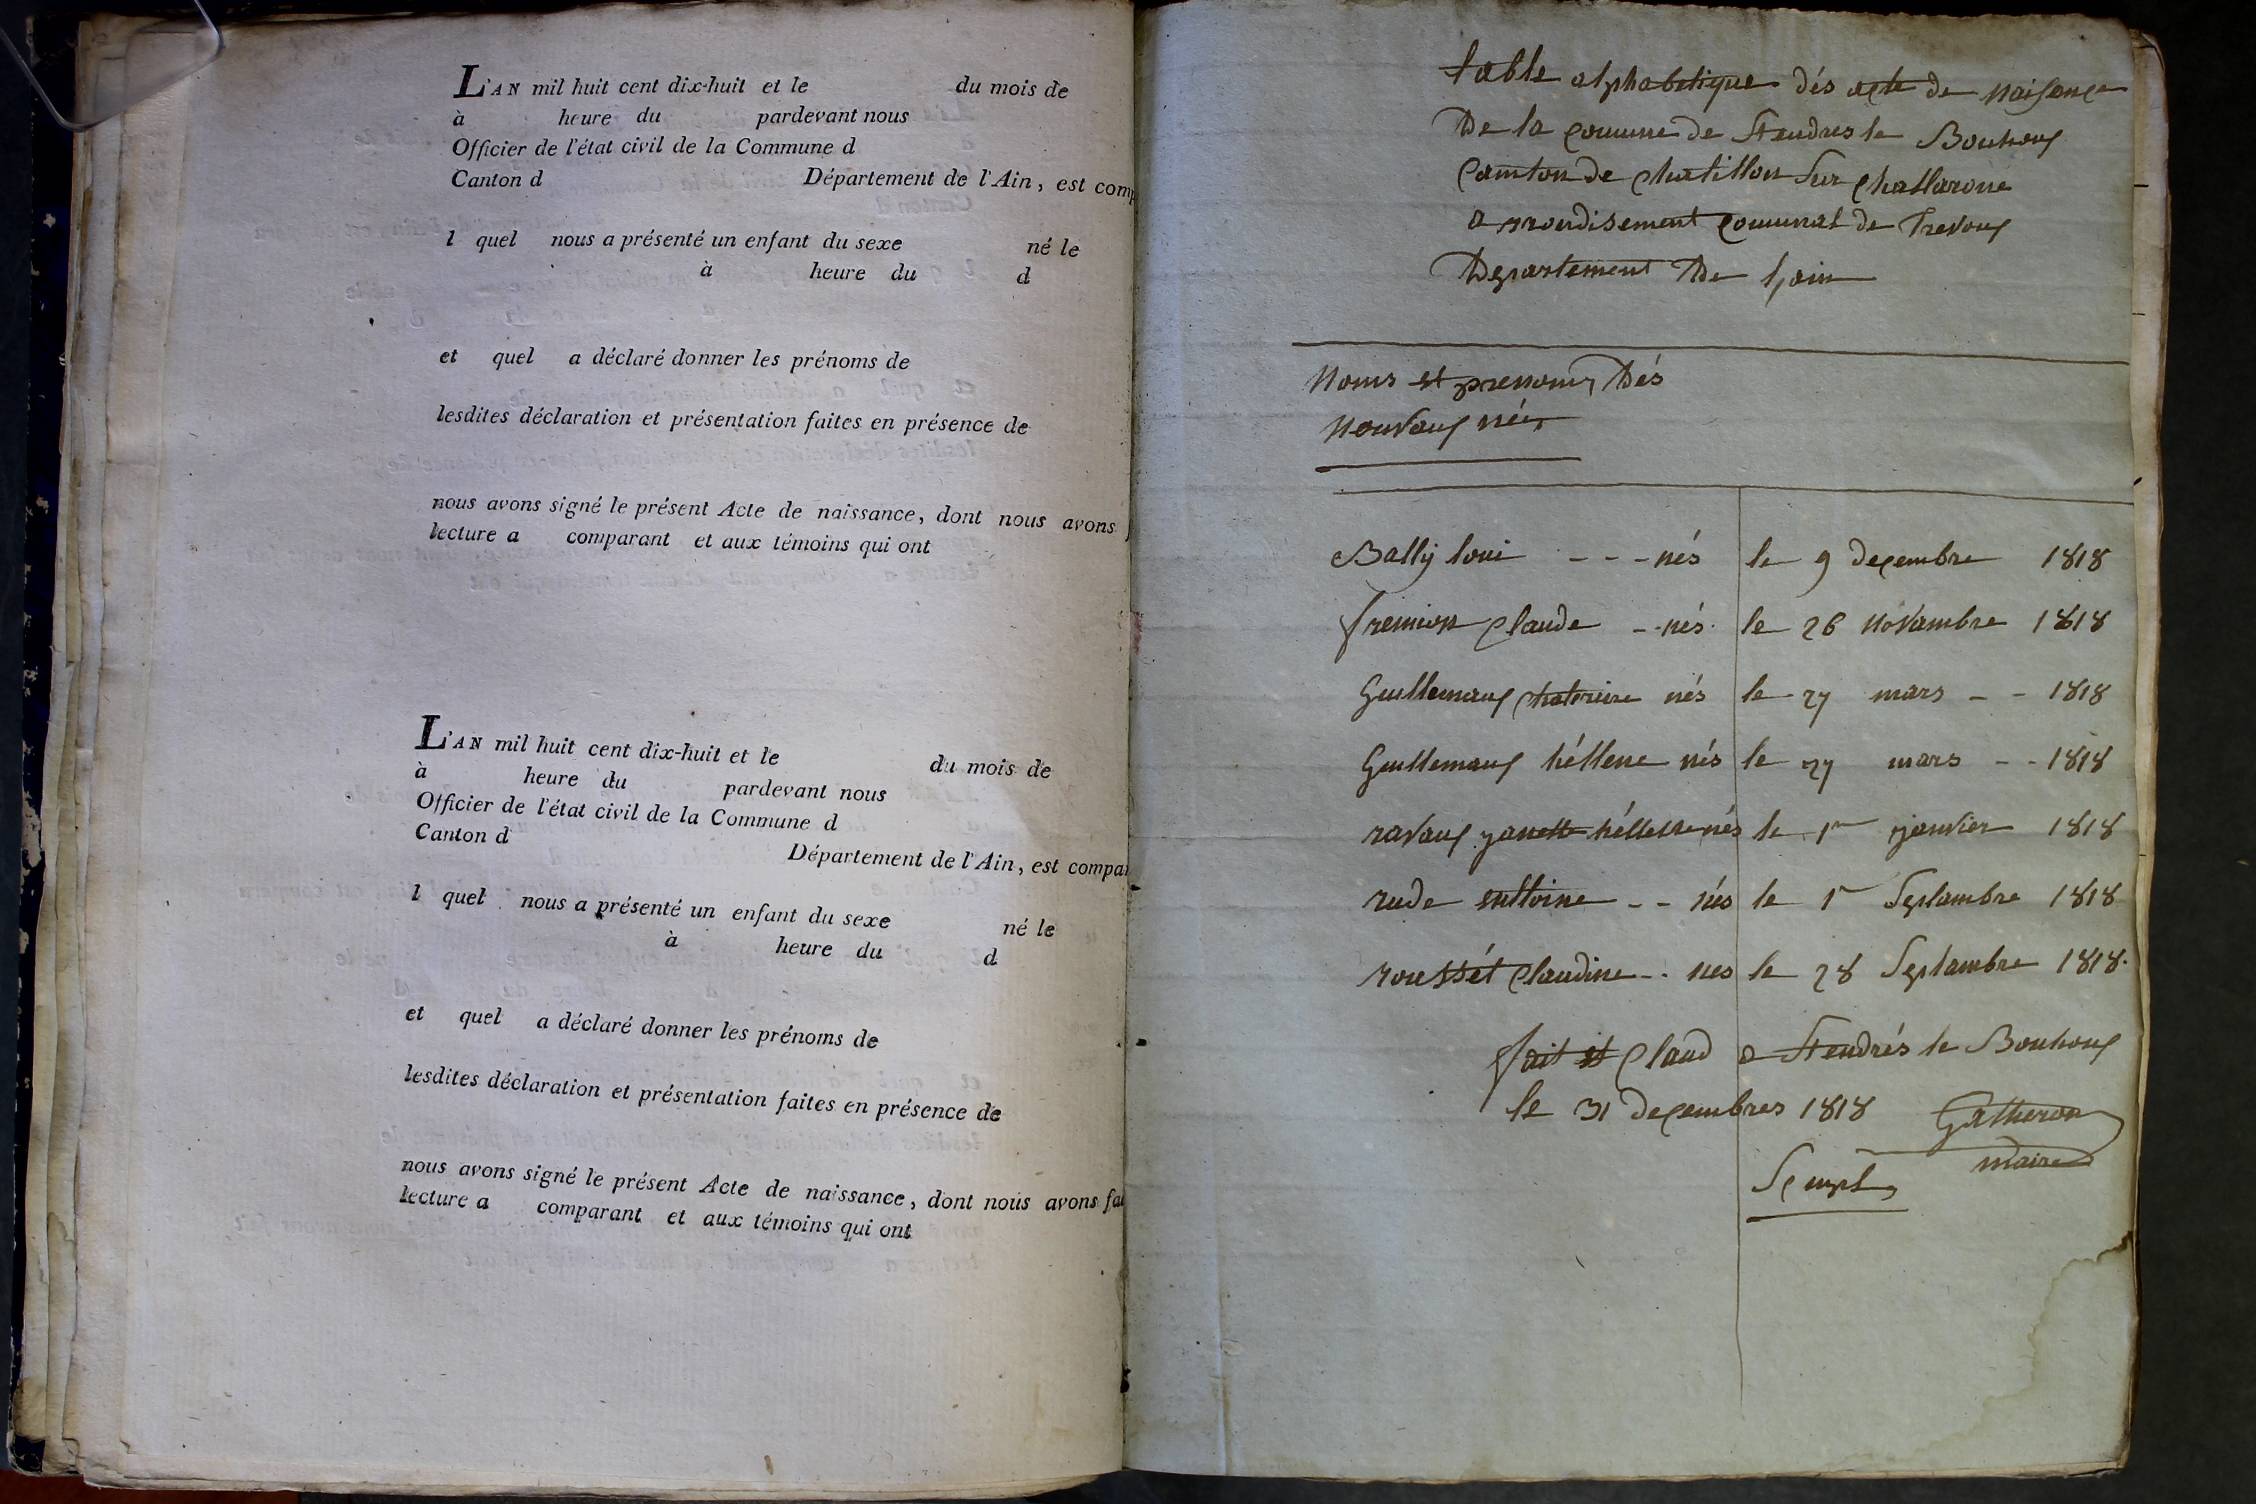 L'AN mil huit cent dix-huit et le du mois de
à heure du pardevant nous
Officier de l'état civil de la Commune d
Canton d Département de l'Ain, est comp
l quel nous a présenté un enfant du sexe né le
à heure du d
et quel a déclaré donner les prénoms de
lesdites déclaration et présentation faites en présence de
nous avons signé le présent Acte de naissance, dont nous avons
lecture a comparant et aux témoins qui ont
L'AN mil huit cent dix-huit et le du mois de
à heure du pardevant nous
Officier de l'état civil de la Commune d
Canton d Département de l'Ain, est compar
l quel nous a présenté un enfant du sexe né le
à heure du d
et quel a déclaré donner les prénoms de
lesdites déclaration et présentation faites en présence de
nous avons signé le présent Acte de naissance, dont nous avons fai
lecture a comparant et aux témoins qui ont
table alphabetique dés acte de naisance
De la comune de St endres le Bouhoux
Canton de chatillon sur challarone
arrondisement comunal de Trevoux
Departement De l,ain
Noms et prenoms Dés
Nouvaux nées
Bally loui - - - nés le 9 decembre 1818
fremion claude - - nés le 26 Novambre 1818
Guillemaux nés le 27 mars - - 1818
Guillemaux héllene nés le 27 mars - - 1818
ravaux janette héllene nés le 1er janvier 1818
rude enttoine - - nés le 1r Septambre 1818
roussét claudine - - nes le 28 Septambre 1818.
fait et claud a St endrés le Bouhoux
le 31 decembres 1818 Gatheron
maire